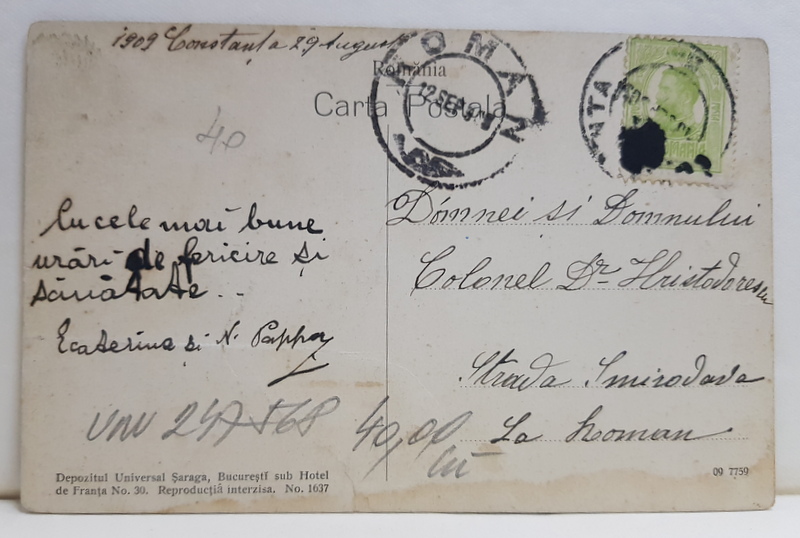 1909 Constanța 29 August
România
Carta Postala
ROMAN
12 SEP
40
Cu cele mai bune
urări de fericire și
sănătate ..
Ecaterina și N. Pappa
Domnei si Domnului
Colonel Dr Hristodorescu
Strada Smirodava
La Roman
40,00
Depozitul Universal Şaraga, Bucureştĭ sub Hotel
de Franţa No. 30. Reproducţia interzisa. No. 1637
09 7759